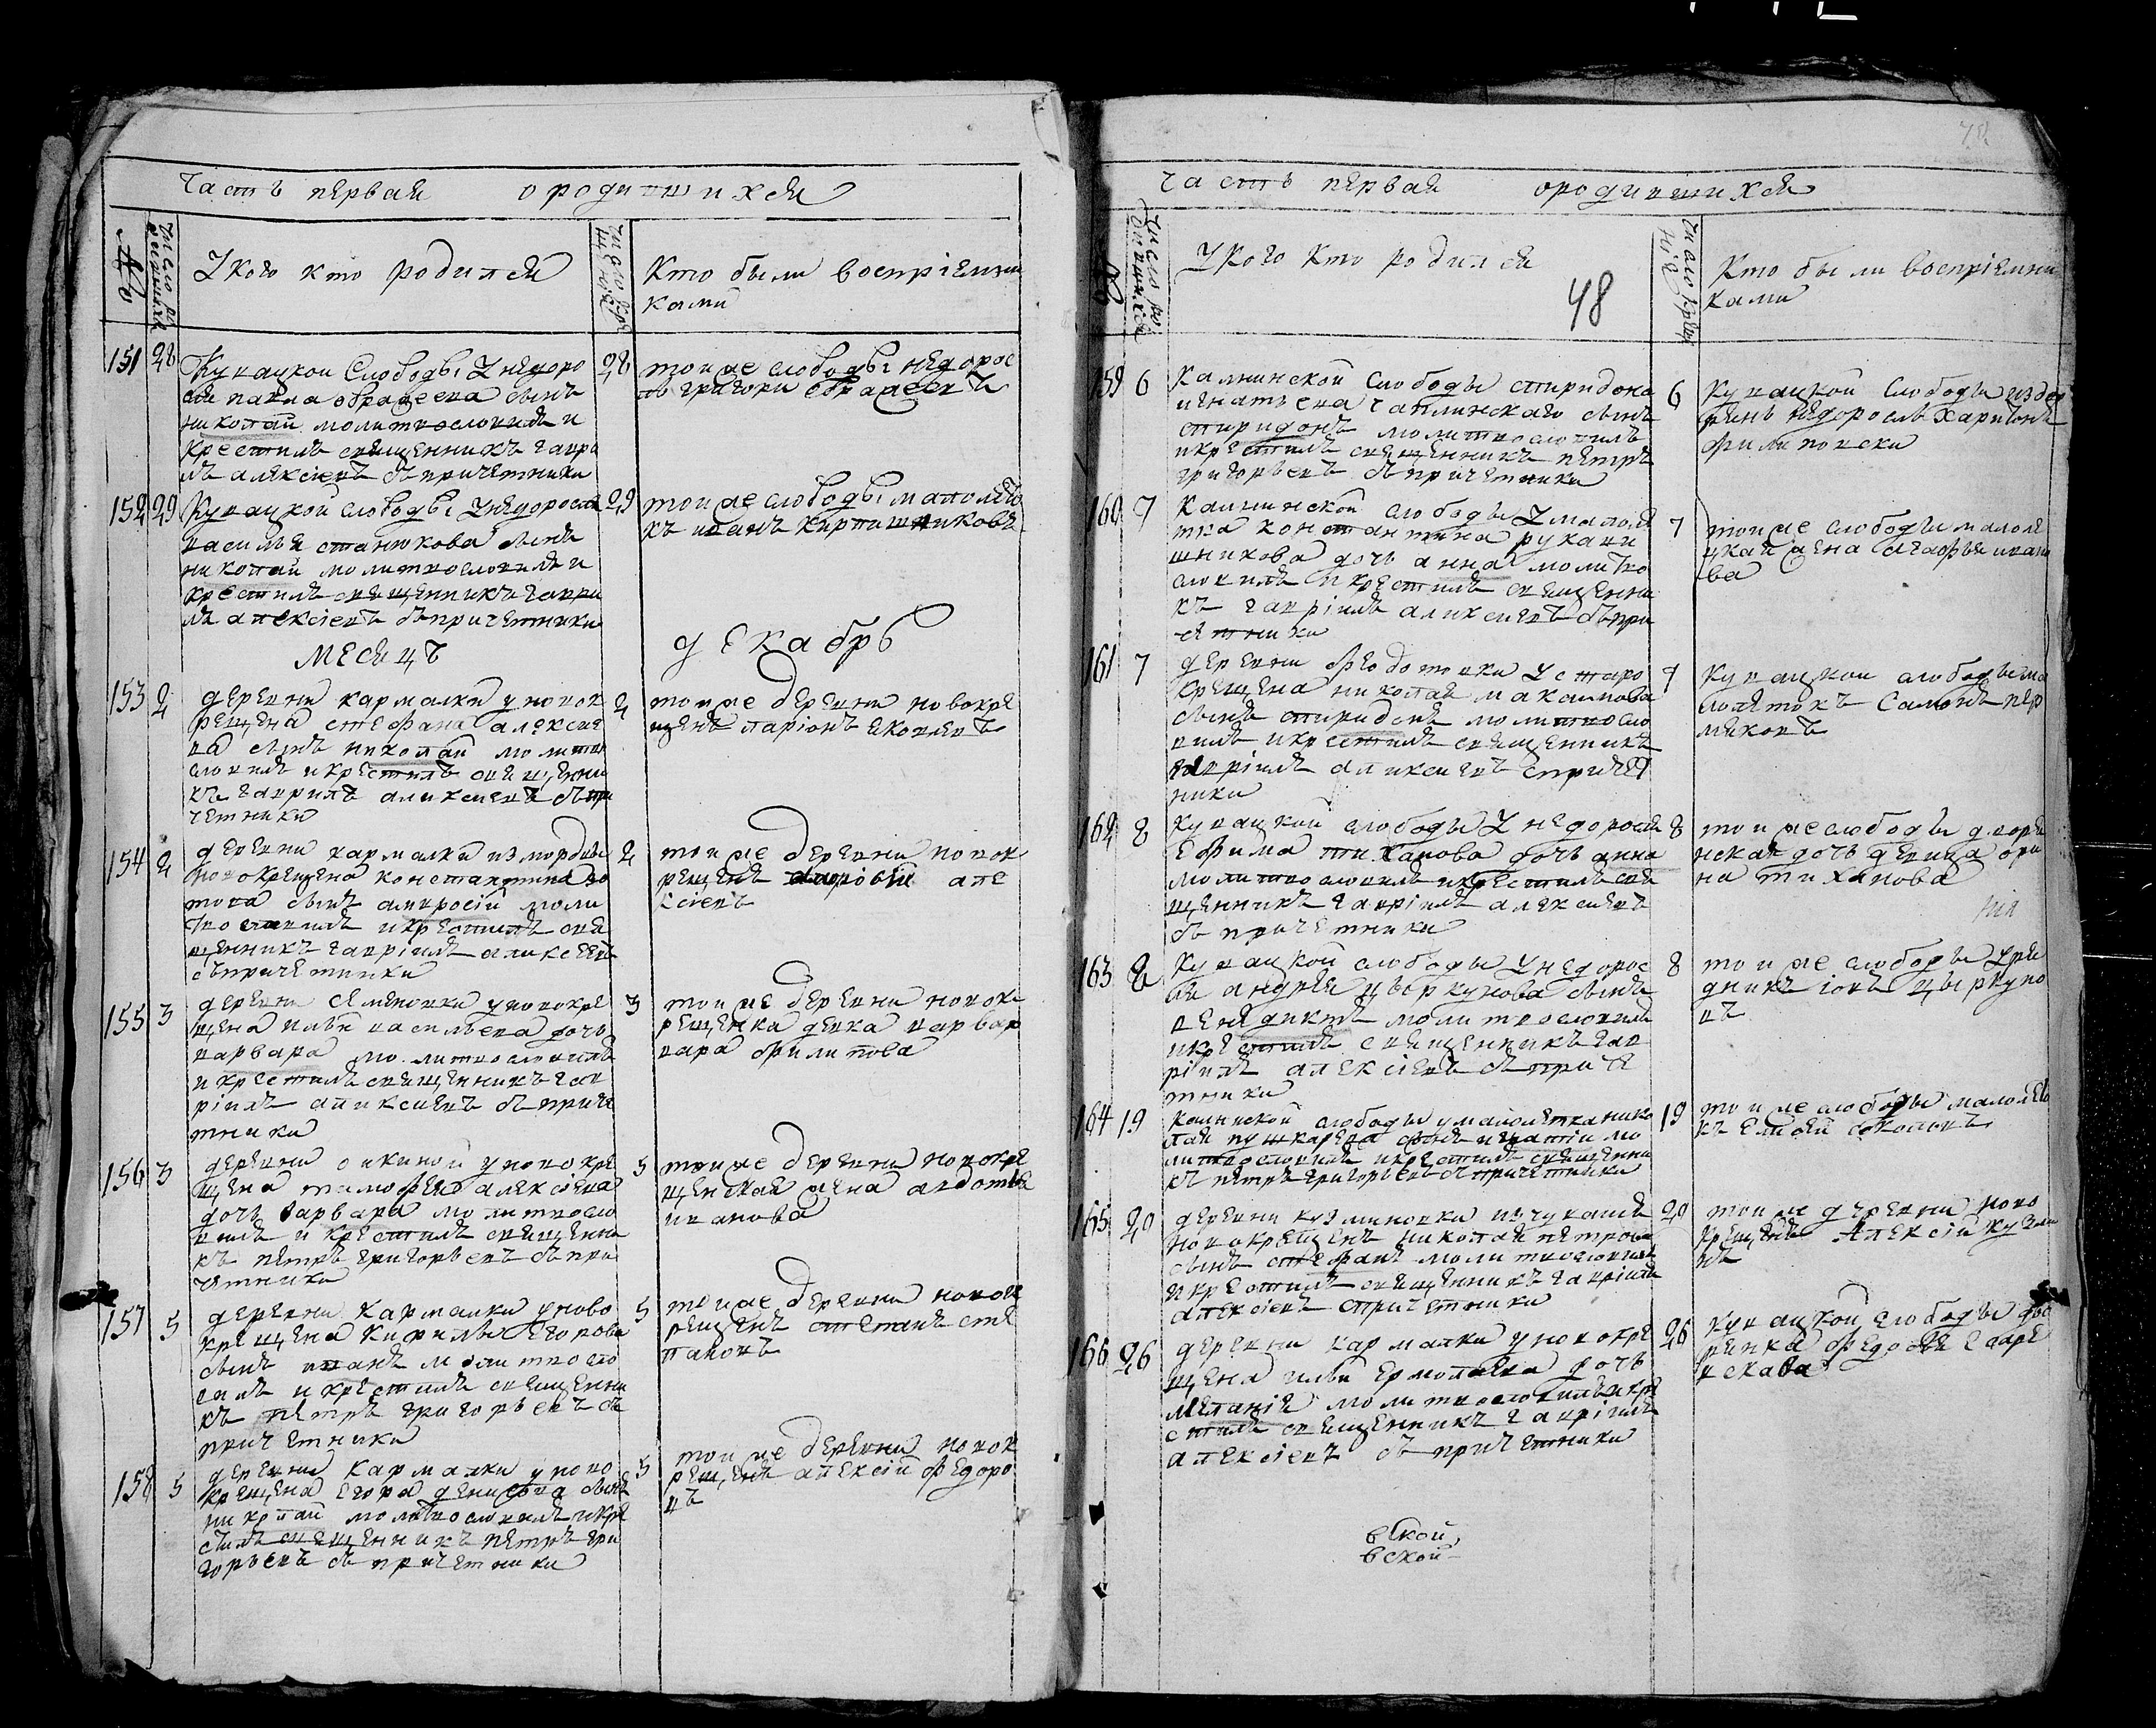 Часть первая о родившихся
№
число родившихся
У кого кто родился
число крещения
Кто были восприемни
ками
151 28 Кувацкой слободы У недоро
сля павла
николай молитвословил и
крестил священникъ гаври
лъ алексіевъ съпричетники
28 тоиже слободы недорос
ль григори
152 29 Кувацкой слободы Унедоросля
василья станюкова сынъ
николай молитвословилъ и
крестилъ священникъ гаври
лъ алексіевъ съпричетники
29 тоиже слободы малолето
къ иванъ кирпишниковъ
месяцъ декабрь
153 2 деревни кармалки у новок
рещена стефана алексие
ва сынъ николай молитво
словилъ и крестилъ священни
къ гаврилъ аликсиевъ съ при
четники
2 тоиже деревни новокре
щенъ ларіонъ яковлевъ
154 2 деревни кармалки измордвы
новокрещена константина
това сынъ амвросій моли
твословилъ икрестилъ свя
щенникъ гавріилъ аликсеевъ
съпричетники
2 тоиже деревни новок
рещенъ але
ксіевъ
155 3 деревни семеновки уновокре
щена ильи васильева дочь
варвара молитвословилъ
и крестилъ священникъ гав
ріилъ аликсиевъ съприче
тники
3 тоиже деревни новок
рещенка девка вар
вара филипова
156 3 деревни оикиной уновокре
щена тимофея алексіева
дочь варвара молитвосло
вилъ и крестилъ священни
къ петръ григорьевъ съпри
четники
5 тоиже деревни новокре
щенская жена авдотья
иванова
157 5 деревни Кармалки уново
крещена кирилы егорова
сынъ иванъ молитвосло
вилъ и крестилъ священни
къ петръ григорьевъ съ
причетники
5 тоиже деревни новок
рещенъ степанъ сте
пановъ
158 5 деревни Кармалки уново
крещена егора денисова сынъ
николай молитвословилъ икре
стилъ священникъ петръ гри
горьевъ съ причетники
5 тоиже деревни новок
рещенъ алексій федоро
въ
Часть первая ородившихся
№
число родившихся
У кого кто родился
48
число крещенія
Кто были восприемни
ками
159 6 Калминской слободы спиридона
игнатьева чаплинскаго сынъ
спиридонъ молитвословилъ
икрестилъ священникъ петръ
григорьевъ съпричетники
6 Кувацкой слободы
недоросль харитонъ
филиповски
160 7 Калминской слободы Умалоле
тка константина рукави
шникова дочь анна молитво
словилъ и крестилъ священни
къ гавріилъ аликсиевъ съпри
четники
7 тоиже слободы малоле
цкая жена агафья ивано
ва
161 7 деревни федотовки Устаро
крещена николая макалмова
сынъ спиридонъ молитвосло
вилъ икрестилъ священникъ
гавріилъ аликсиевъ спричет
ники
7 Кувацкой слободы ма
лолетокъ Самонъ пер
мяковъ
162 8 Кувацкой слободы У недоросля
ефима тиханова дочь анна
молитвословилъ икрестилъ свя
щенникъ гавріилъ алексиевъ
съ причетники
8 тоиже слободы дворя
нская дочь девица ори
на тиханова
163 8 Кувацкой слободы Унедорос
ля андрея цыркунова сынъ
венядиктъ молитвословилъ
икрестилъ священникъ гав
ріилъ алексіевъ съприче
тники
8 тоиже слободы уря
дникъ іовъ цыркуно
въ
164 19 Калмиской слободы умалолетканико
лая пушкарева сынъ игнатіи мо
литвословилъ икрестилъ священни
къ петръ григорьевъ съпричетники
19 тоиже слободы малолето
къ елисей соколовъ
165 20 деревни кузминовки изчувашъ
новокрещенъ николая петрова
сынъ стефанъ молитвословилъ
икрестилъ священникъ гавріилъ
алексіевъ спричетники
20 тоиже деревни ново
крещенъ Алексій кузми
нъ
166 26 деревни кармалки уновокре
щена ильи ермолаева дочь
меланія молитвословилъ икре
стилъ священникъ гавріилъ
алексіевъ съ причетники
26 Кувацкой слободы дво
рянка федосья
вской
вской